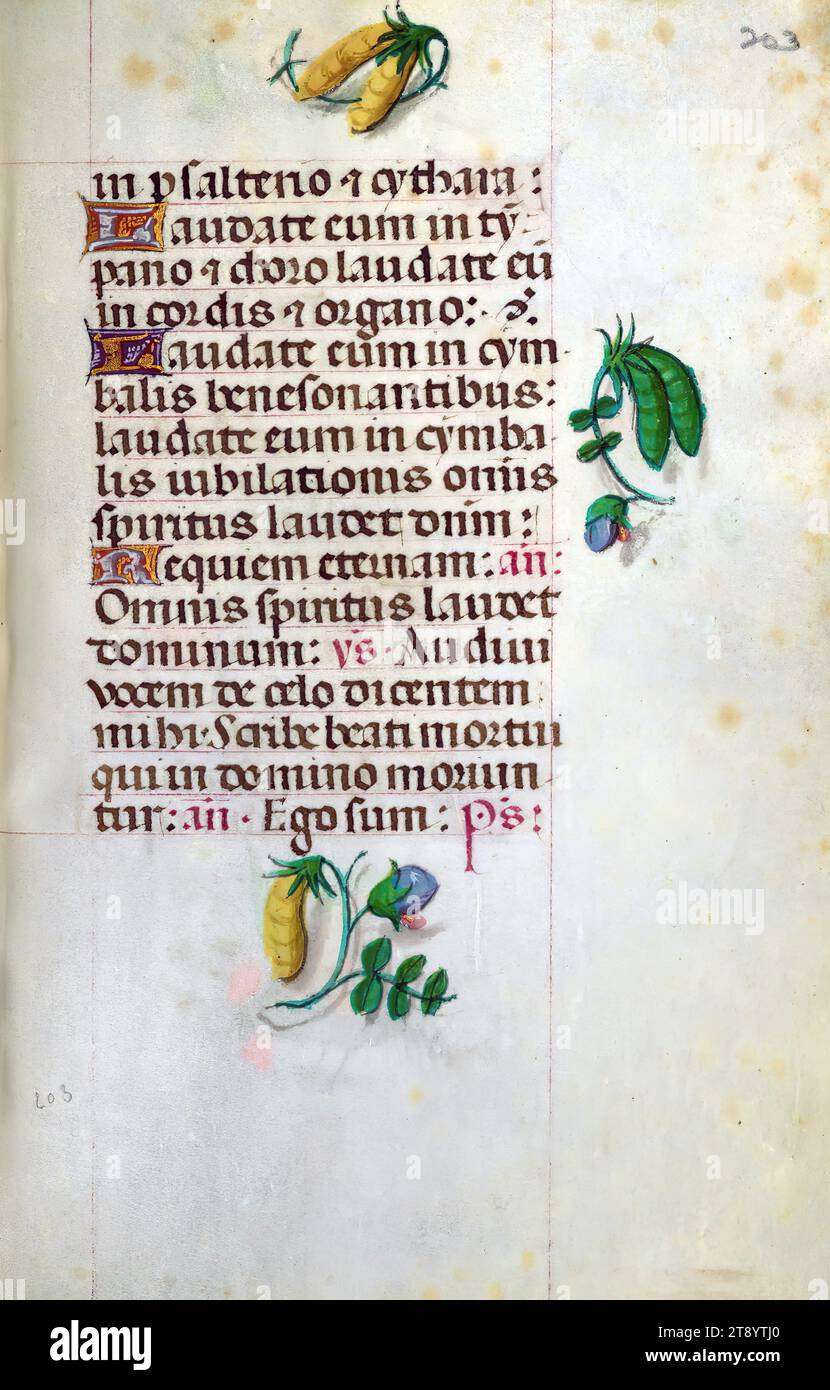 203
in psalterio ⁊ cythara:
Laudate eum in tȳ-
pano ⁊ choro laudate eū
in cordis ⁊ organo:
Laudate eum in cym-
balis benesonantibus:
laudate eum in cymba-
lis iubilationis om̄is
spiritus laudet dn̄m:
Requiem eternam: an̄:
Omnis spiritus laudet
dominum: v̄s. Audiui
vocem de celo dicentem
mihi. Scribe beati mortui
qui in domino moriun-
tur: an̄. Ego sum: P̄s:
203
alamy
Image ID: 2T8YTJ0
www.alamy.com